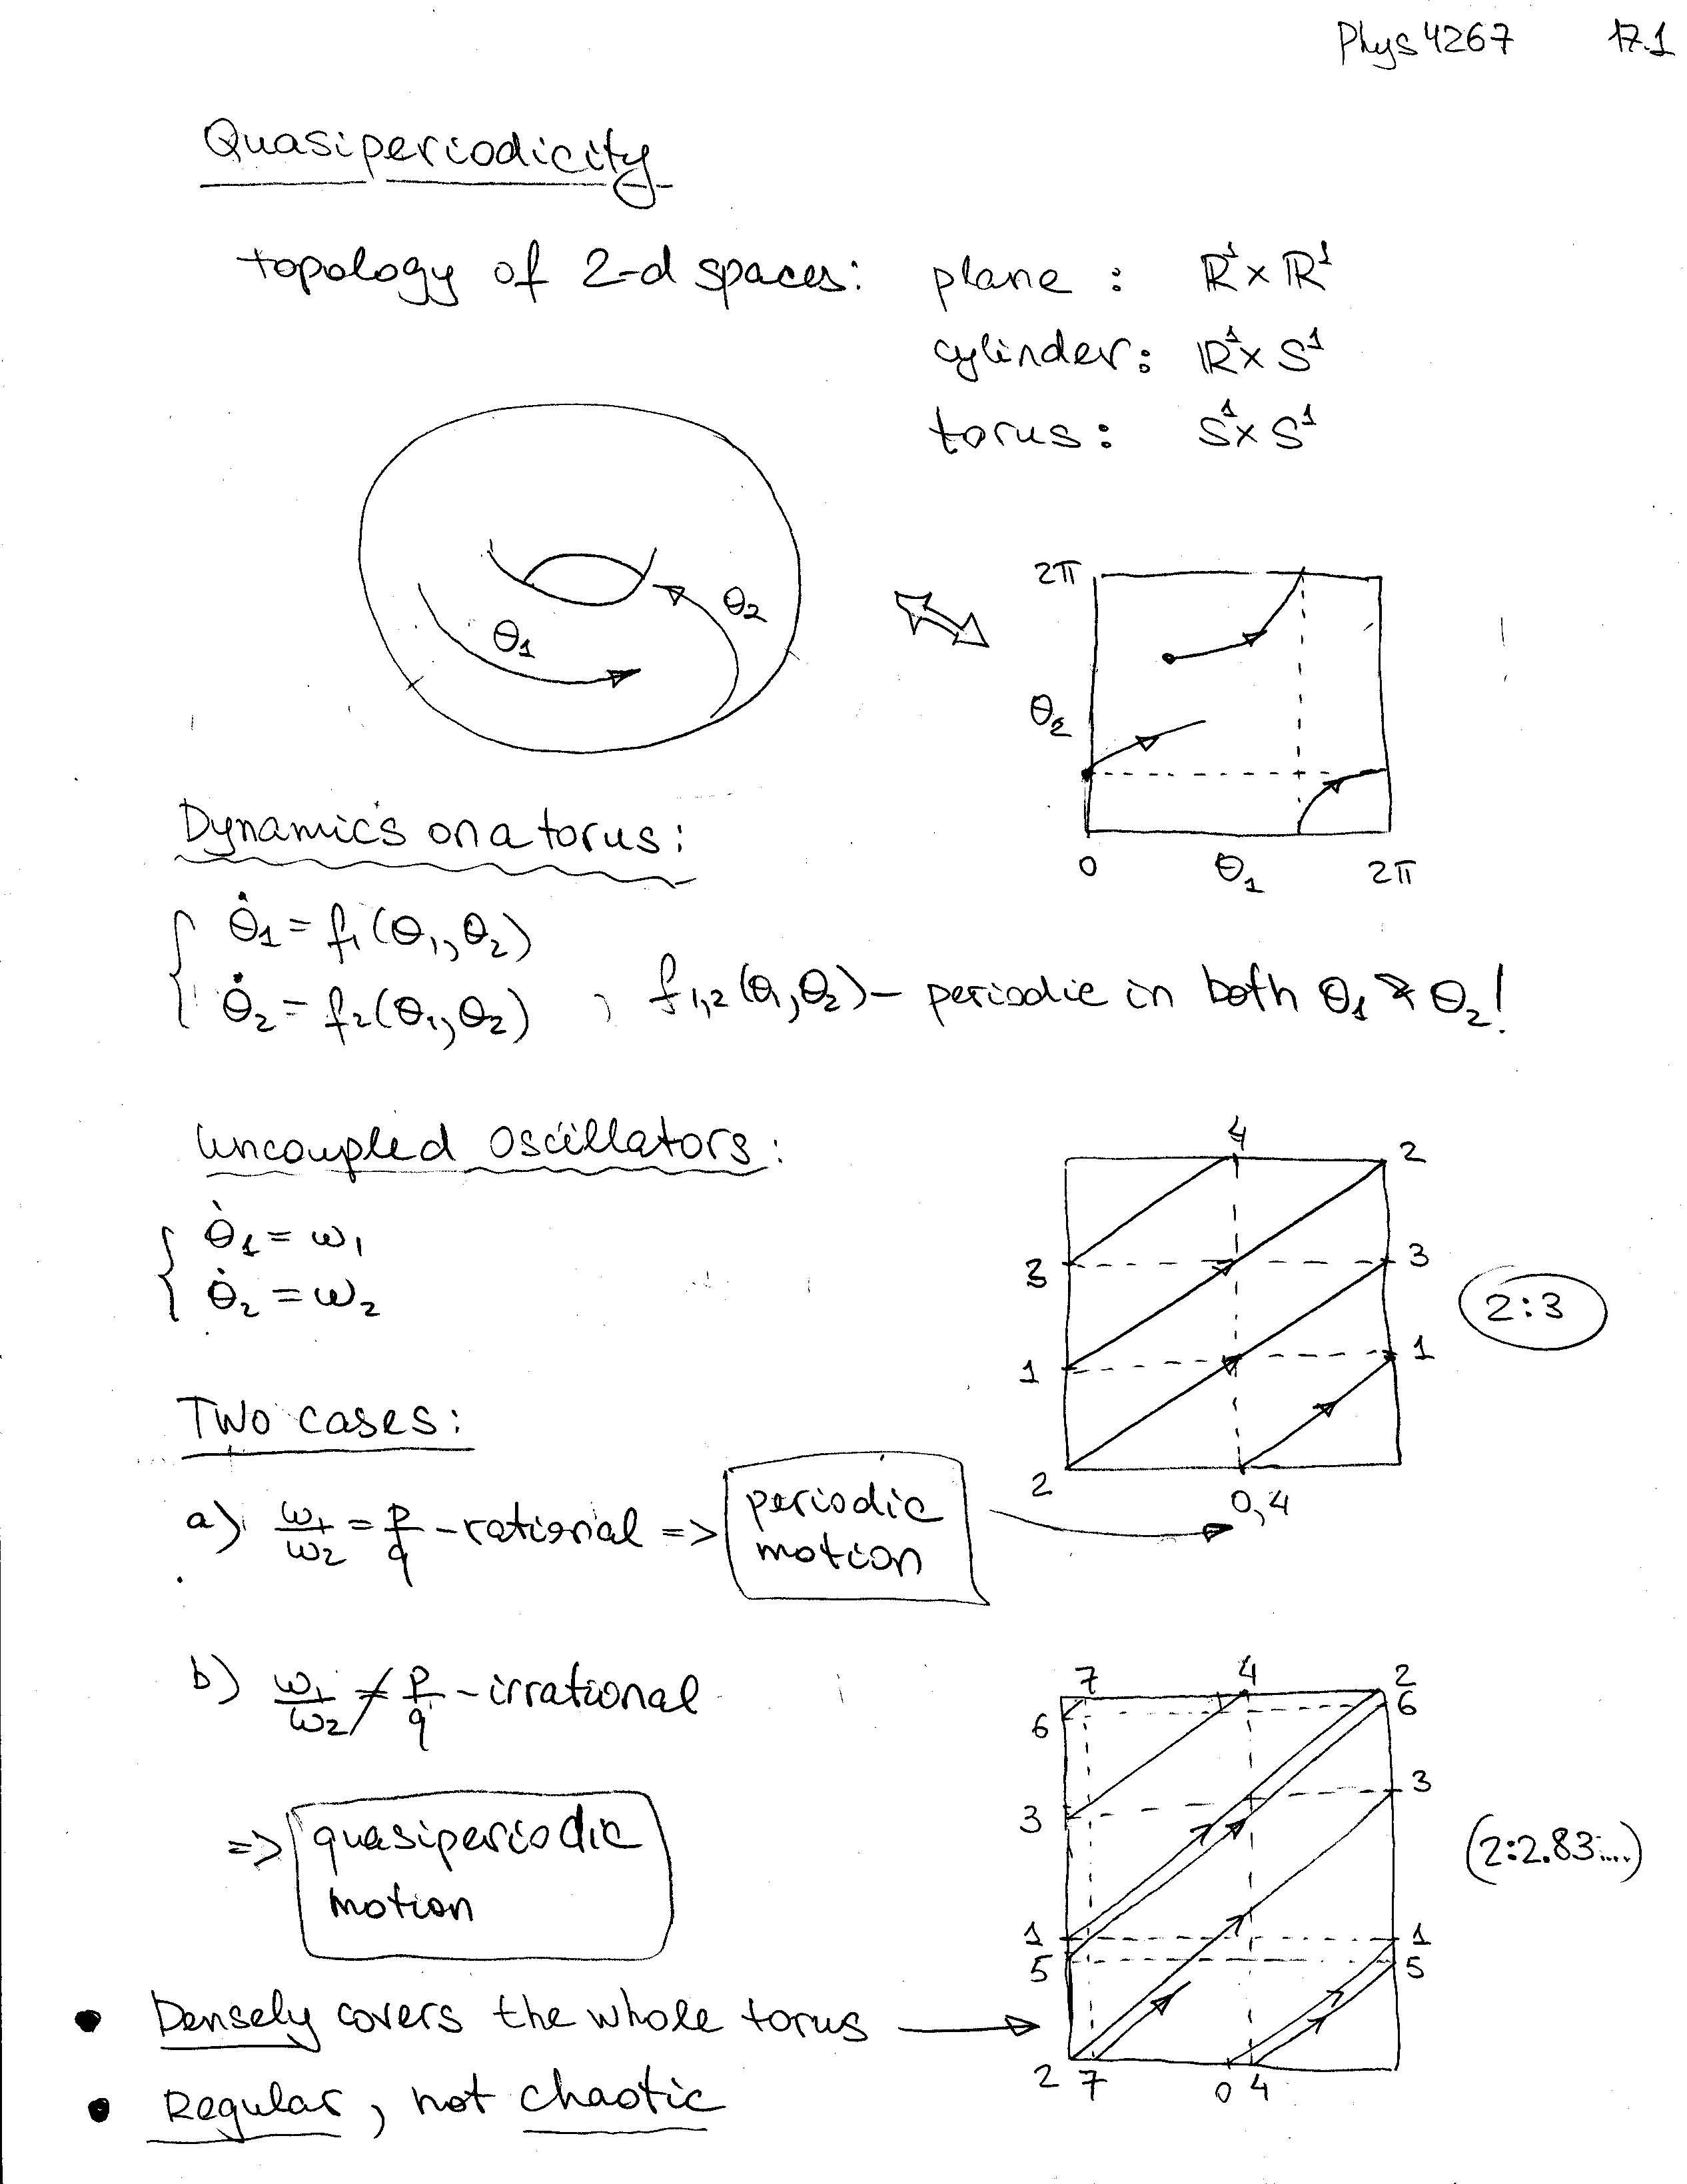 Phys 4267 17.1
Quasiperiodicity
topology of 2-d spaces: plane : ℝ¹×ℝ¹
cylinder: ℝ¹×S¹
torus: S¹×S¹
2π
θ₂
θ₁
θ₂
Dynamics on a torus:
0 θ₁ 2π
θ̇₁ = f₁(θ₁, θ₂)
θ̇₂ = f₂(θ₁, θ₂) , f₁,₂(θ₁, θ₂) – periodic in both θ₁ & θ₂!
Uncoupled oscillators:
4
2
θ̇₁ = ω₁
θ̇₂ = ω₂
3 3
2:3
1 1
Two cases:
2
0,4
a) ω₁/ω₂ = p/q – rational => periodic
motion
b) ω₁/ω₂ ≠ p/q – irrational
7 4 2
6 6
3 3
=> quasiperiodic
motion
(2:2.83...)
1 1
5 5
• Densely covers the whole torus
2 7 0 4
• Regular, not chaotic